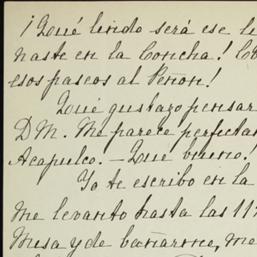 ¡Qué lindo será ese
naste en la Concha!
esos paseos al Peñon!
Qué gustazo pensar
D M. Me parece
Acapulco. — Que bueno!
Yo te escribo en la
me levanto hasta las 11
Misa y de bañarme, me